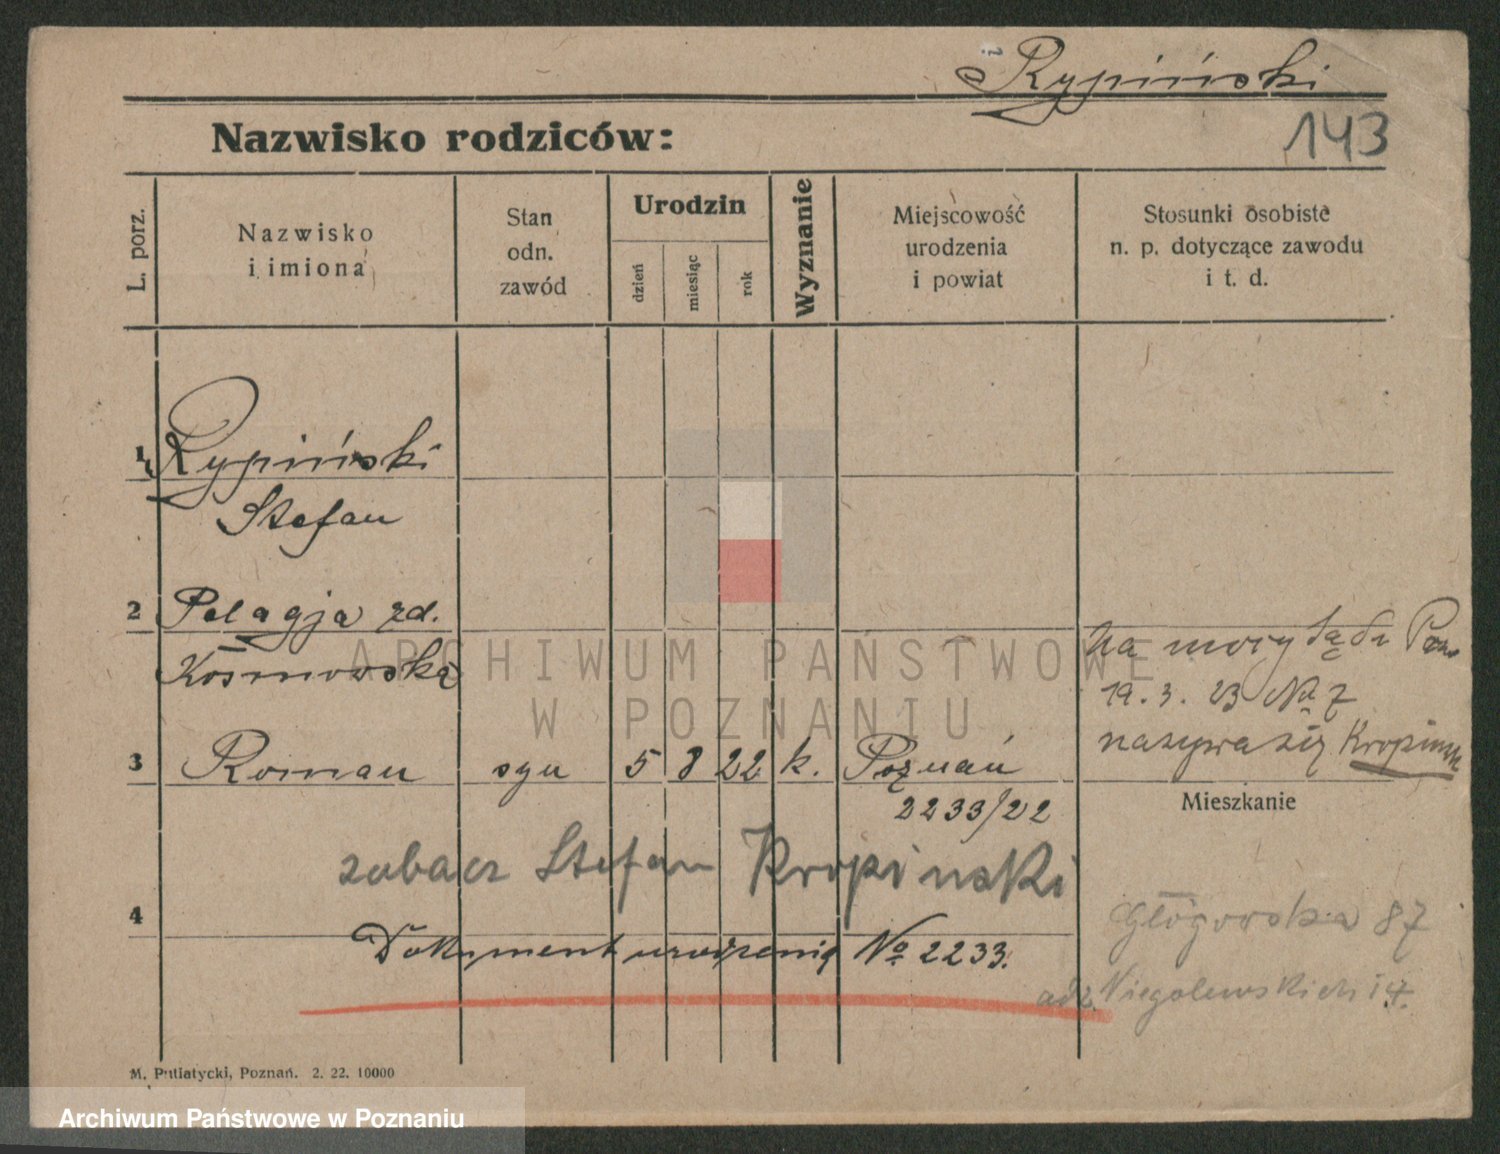 Rypiński
143
Nazwisko rodziców:
L. porz.
Nazwisko
i imiona
Stan
odn.
zawód
Urodzin
dzień
miesiąc
rok
Wyznanie
Miejscowość
urodzenia
i powiat
Stosunki osobiste
n. p. dotyczące zawodu
i t. d.
1
Rypiński
Stefan
2 Pelagja zd.
Kośmowska
na mocy Sądu Pozn
19. 3. 23 No 7
nazywa się
3 Roman syn 5 8 22 k. Poznań
2233/22
Mieszkanie
zobacz Stefan Kropinski
4
Głogowska 87
Dokument urodzenia No 2233.
adz. Niegolewskich 14.
M. Putiatycki, Poznań. 2. 22. 10000
ARCHIWUM PAŃSTWOWE
W POZNANIU
Archiwum Państwowe w Poznaniu